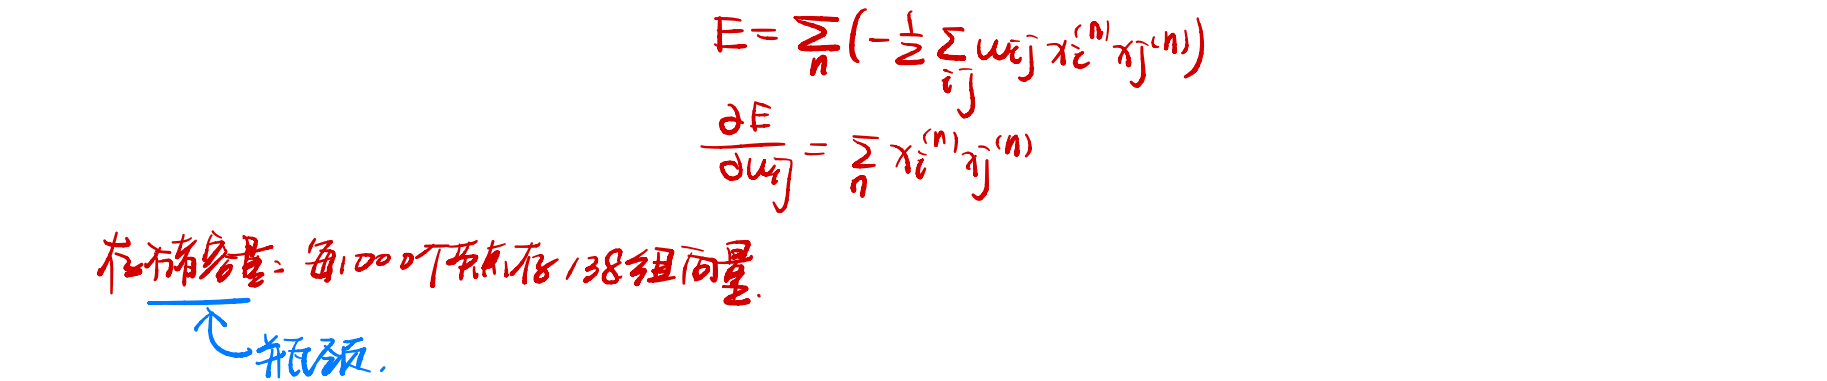 E = ∑_n (-1/2 ∑_{ij} w_{ij} x_i^{(n)} x_j^{(n)})
∂E/∂w_{ij} = ∑_n x_i^{(n)} x_j^{(n)}
存储容量: 每1000个节点存138组向量.
瓶颈.